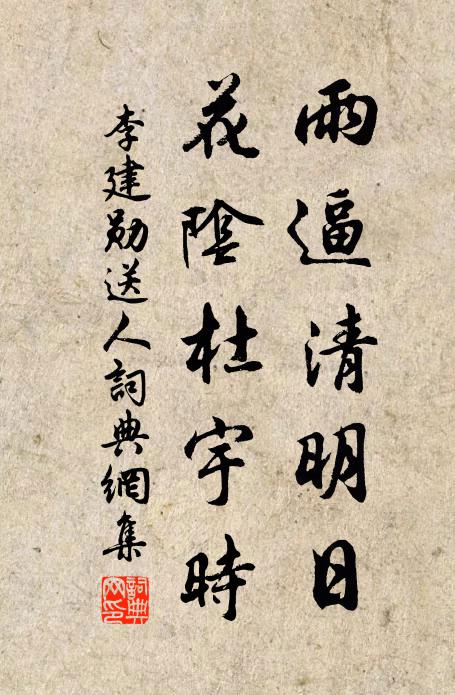 雨逼清明日
花陰杜宇時
李建勛送人詞典網集
詞典網印